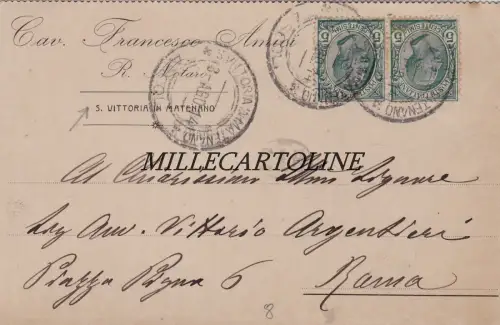 Cav. Francesco Amici
R. Notaro
S. VITTORIA IN MATENANO
S. VITTORIA IN MATENANO
8 APR 14
MILLECARTOLINE
Al Chiarissimo Illmo Signore
Sig Avv. Vittorio Argentieri
Piazza Pigna 6
Roma
8